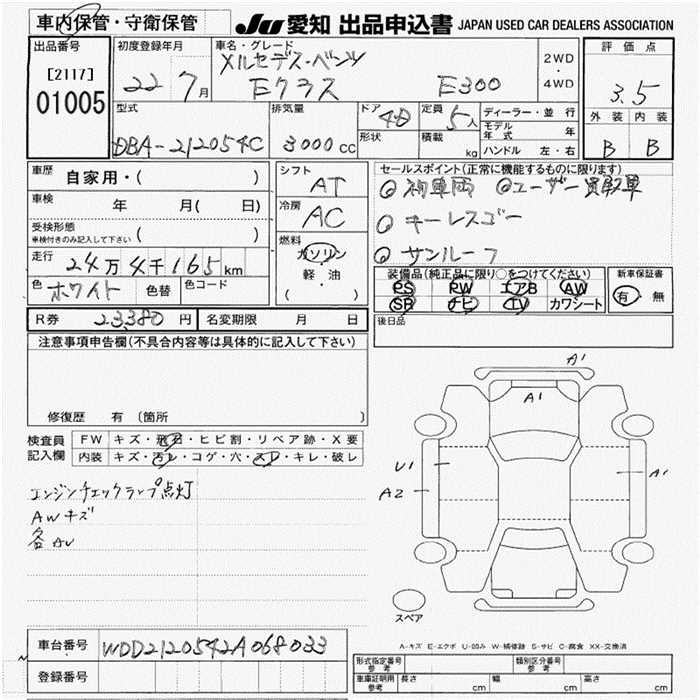 車内保管・守衛保管
JU 愛知 出品申込書 JAPAN USED CAR DEALERS ASSOCIATION
出品番号
[2117]
01005
初度登録年月
22 7月
車名・グレード
メルセデス・ベンツ
Eクラス E300
2WD
・
4WD
評価点
3.5
外装 内装
B B
型式
DBA-212054C
排気量
3000cc
ドア 4D
形状
定員 5人
積載 kg
ディーラー・並行
モデル年式 年
ハンドル 左・右
車歴 自家用・( )
車検 年 月( 日)
受検形態
車検付きのみ記入して下さい ( )
走行 24万4千165km
色 ホワイト 色替 色コード
シフト
AT
冷房
AC
燃料
ガソリン
軽・油
( )
セールスポイント(正常に機能するものに限ります)
◎初車両 ◎ユーザー買取車
◎キーレスゴー
◎サンルーフ
装備品(純正品に限り○をつけてください)
PS PW エアB AW
SR ナビ TV カワシート
新車保証書
有・無
後日品
R券 23,380円 名変期限 月 日
注意事項申告欄(不具合内容等は具体的に記入して下さい)
修復歴 有 〔箇所 〕
検査員
記入欄
FW キズ・飛石・ヒビ割・リペア跡・X要
内装 キズ・汚レ・コゲ・穴・スレ・キレ・破レ
エンジンチェックランプ点灯
AWキズ
各AU
A1
A1
U1
A2
A1
スペア
A-キズ E-エクボ U-凹み W-補修跡 S-サビ C-腐食 XX-交換済
車台番号 WDD2120542A068033
登録番号
形式指定番号
参考
類別区分番号
参考
車庫証明用
参考
長さ cm 幅 cm 高さ cm